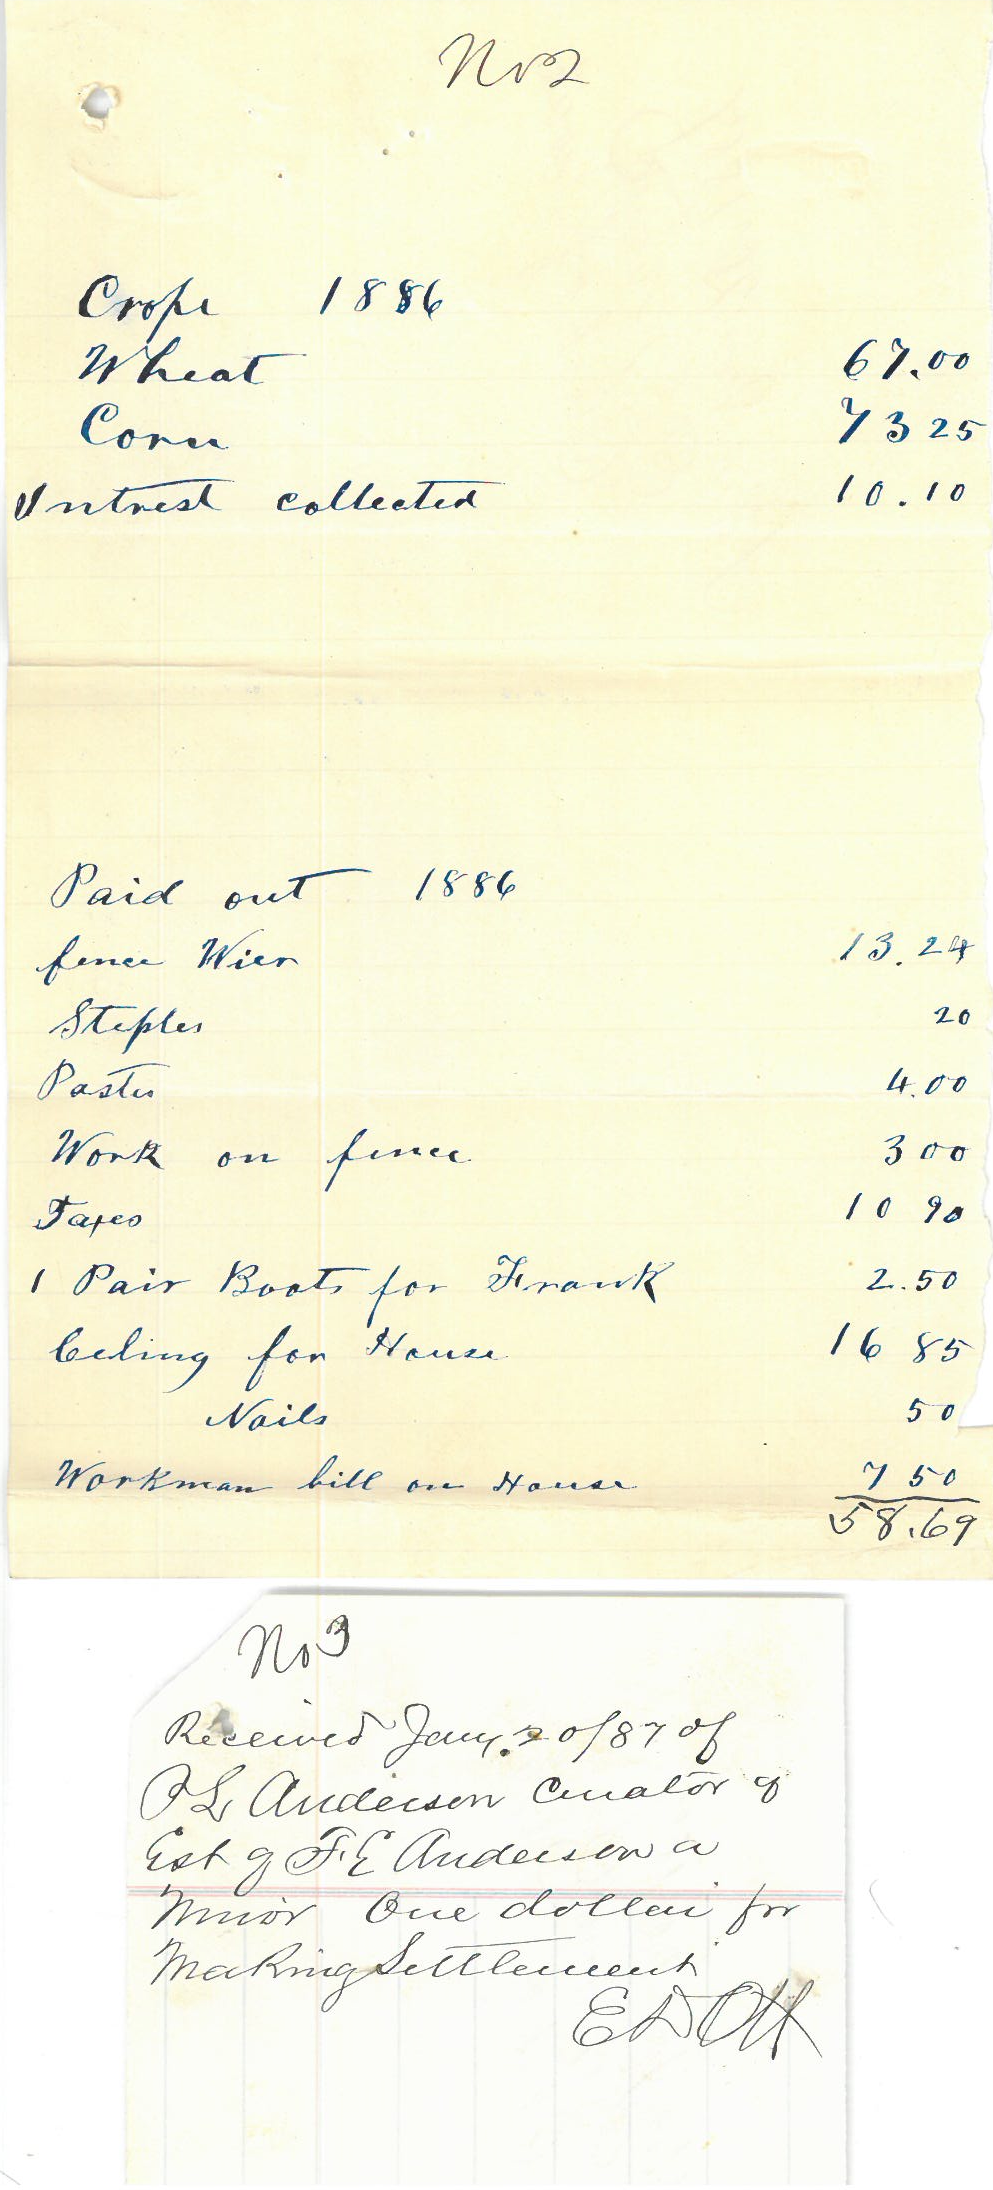 No 2
Crops 1886
Wheat 67.00
Corn 73 25
Intrest collected 10.10
Paid out 1886
fence Wier 13.24
Steples 20
Postes 4.00
Work on fence 3 00
Taxes 10 90
1 Pair Boots for Frank 2.50
Celing for House 16 85
Nails 50
Workman bill on House 7 50
58.69
No 3
Received Jany. 20/87 of
P L Anderson Curator of
Est of F E Anderson a
Minor One dollar for
Making Settlement
E D Ott